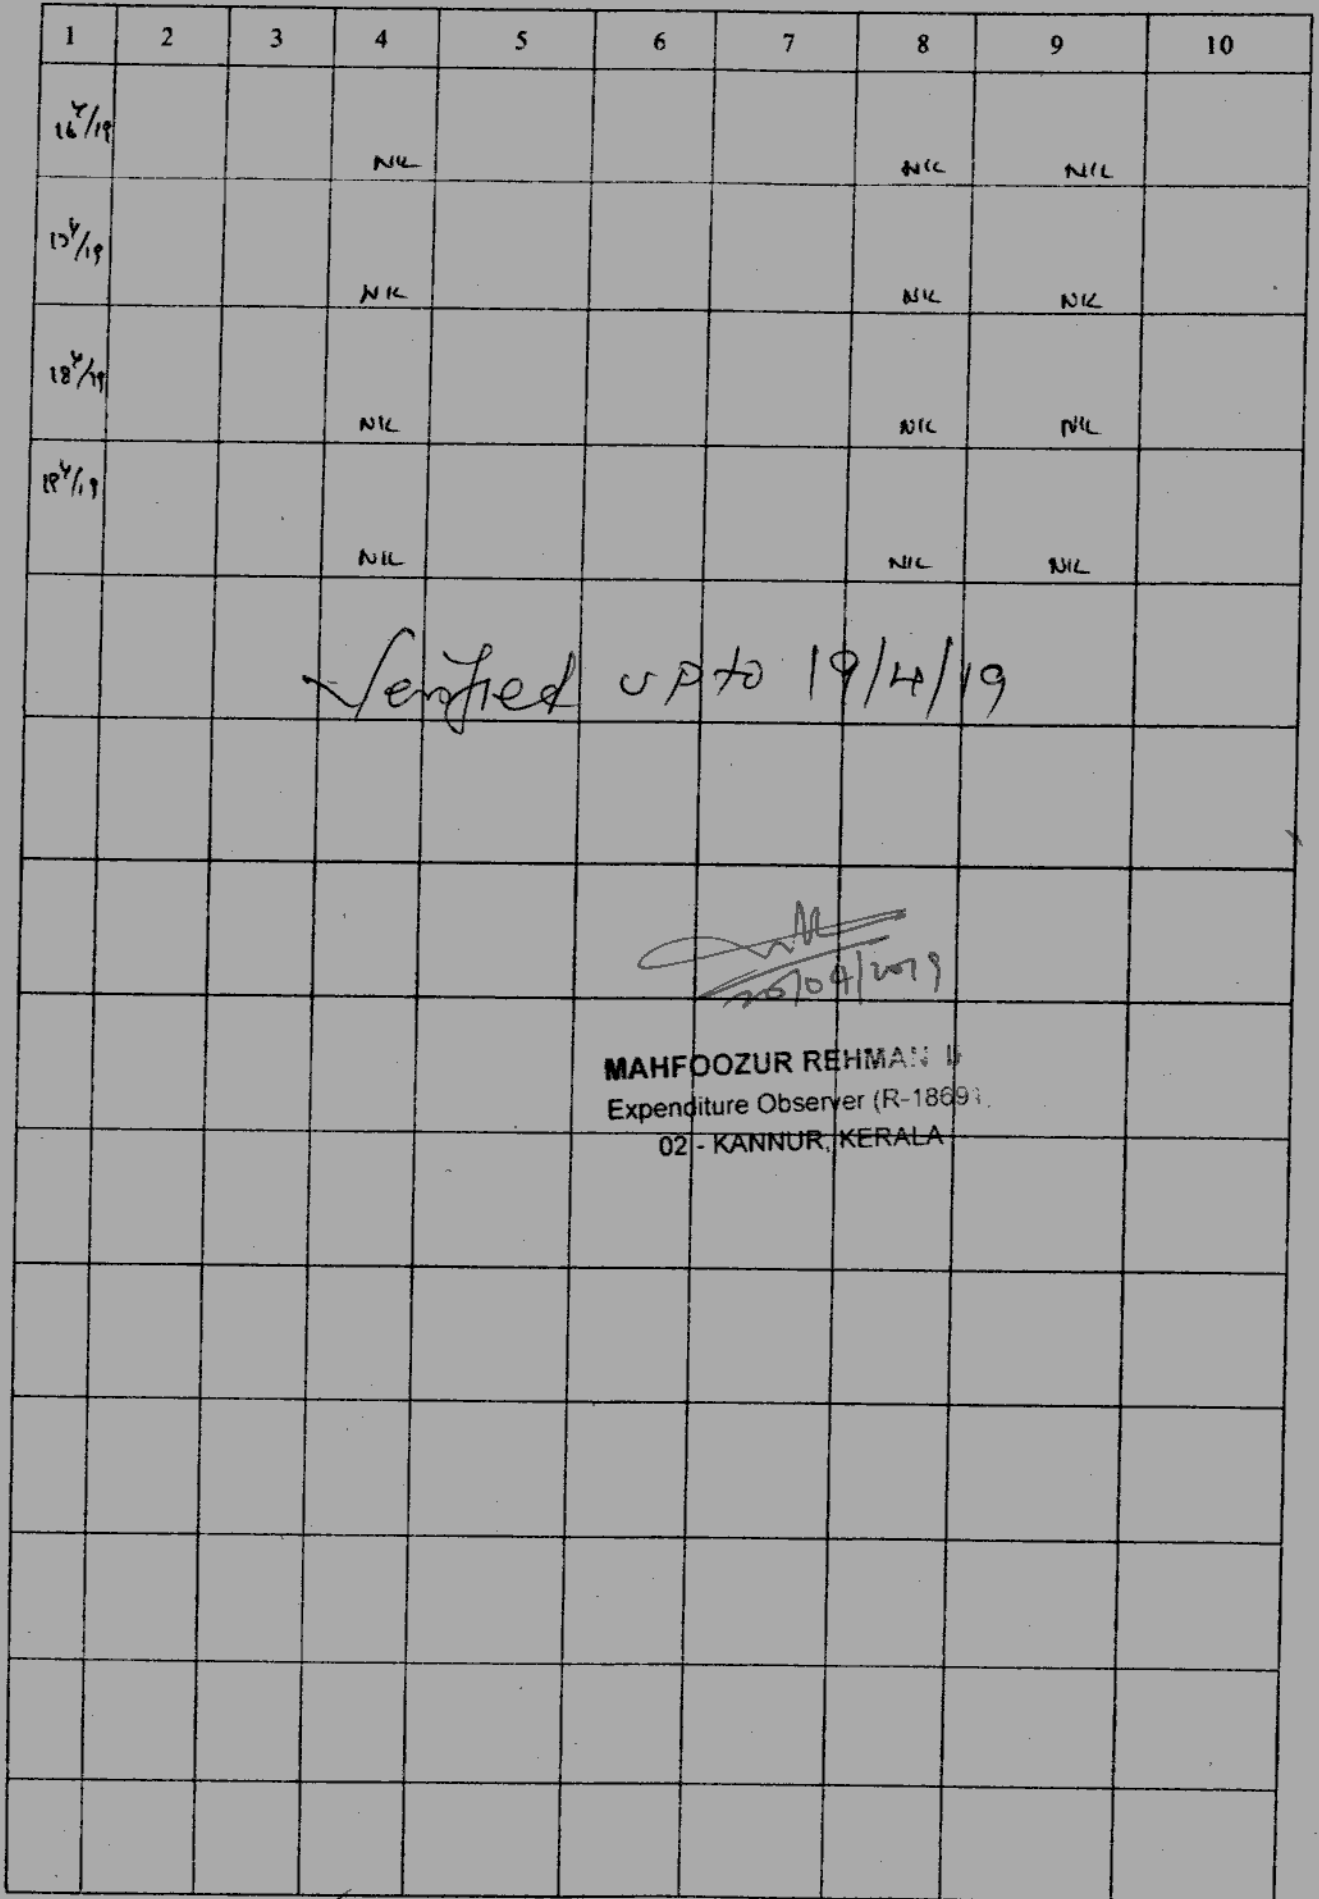 1 2 3 4 5 6 7 8 9 10
16/4/19 NIL NIL NIL
17/4/19 NIL NIL NIL
18/4/19 NIL NIL NIL
19/4/19 NIL NIL NIL
Verified upto 19/4/19
20/04/2019
MAHFOOZUR REHMAN
Expenditure Observer (R-1869
02 - KANNUR, KERALA